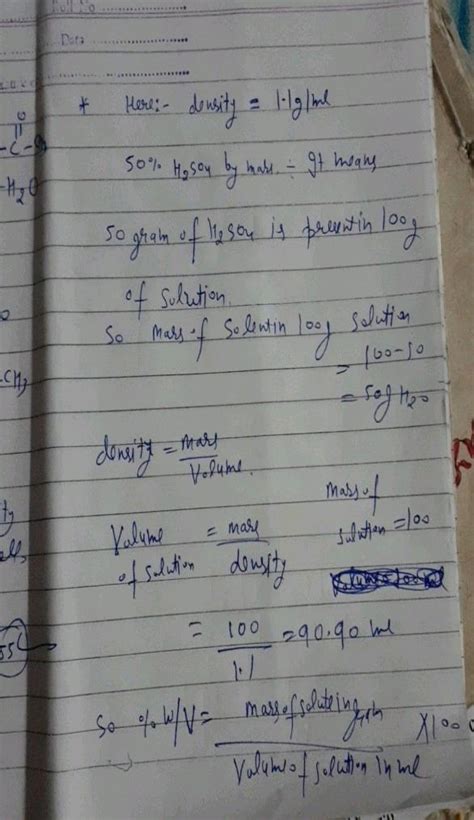 Roll No
Date
* Here:- density = 1.1g/ml
50% H2SO4 by mass ÷ It means
50 gram of H2SO4 is present in 100g
of solution.
So Mass of Solent in 100g solution
= 100-50
= 50g H2O
density = Mass
Volume.
Mass of
solution = 100
Volume = mass
of solution density
= 100 = 90.90 ml
1.1
So % W/V = Mass of solute in gram X100
Volume of solution in ml
O
-C-
-H2O
-CH3
55